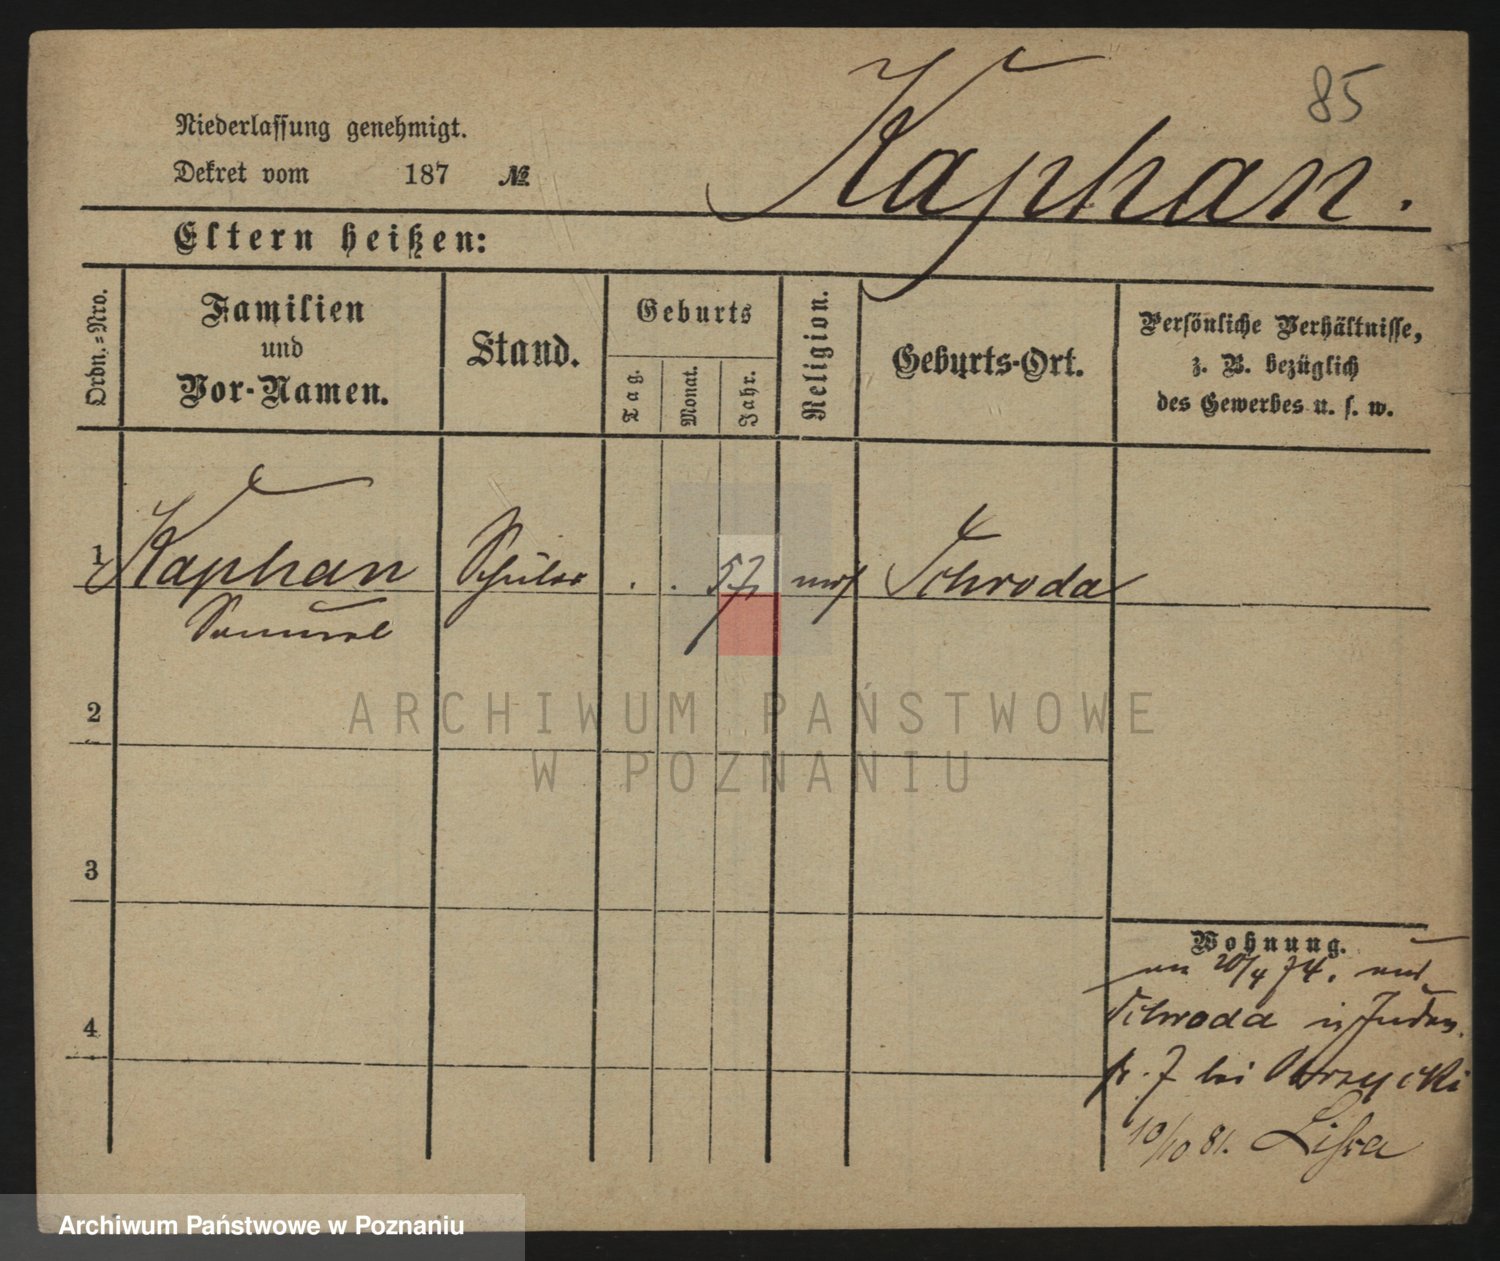 85
Kaphan.
Niederlassung genehmigt.
Dekret vom 187 №
Eltern heißen:
Ordn.-Nro.
Familien
und
Vor-Namen.
Stand.
Geburts
Tag.
Monat.
Jahr.
Religion.
Geburts-Ort.
Persönliche Verhältnisse,
z. B. bezüglich
des Gewerbes u. s. w.
1 Kaphan Schüler . . 57 mos Schroda
Samuel
2
3
4
Wohnung.
20/4 74.
Schroda Juden
7 bei
10/10 81. Lissa
ARCHIWUM PAŃSTWOWE
W POZNANIU
Archiwum Państwowe w Poznaniu